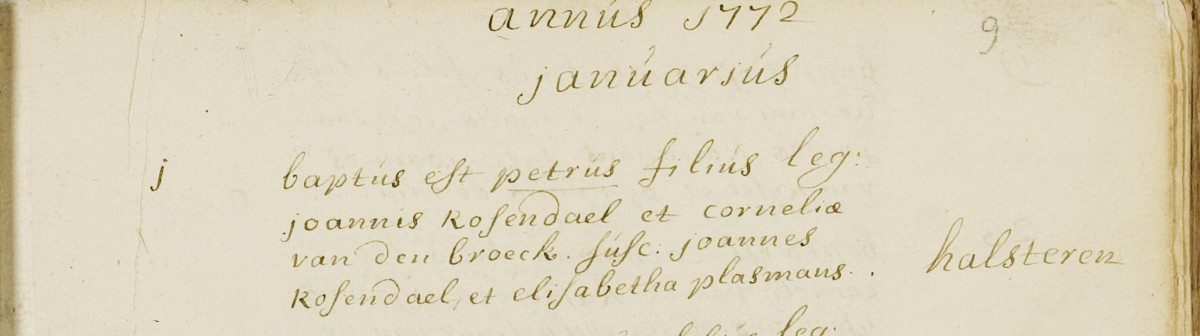 annús 1772
9
janúariús
j baptús est petrús filiús leg:
joannis Rosendael et corneliæ
van den broeck. súsc. joannes
halsteren
Rosendael, et elisabetha plasmans.
leg: